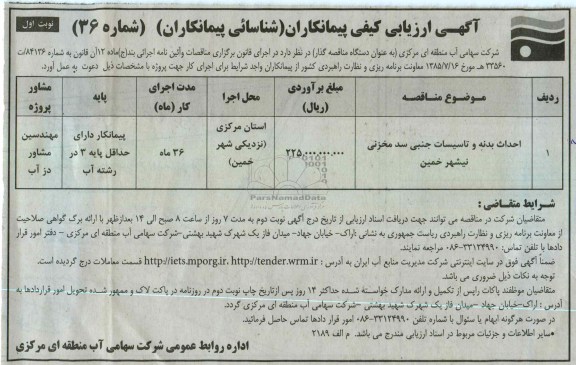 نوبت اول
آگهی ارزیابی کیفی پیمانکاران(شناسائی پیمانکاران) (شماره ۳۶)
شرکت سهامی آب منطقه ای مرکزی (به عنوان دستگاه مناقصه گذار) در نظر دارد در اجرای قانون برگزاری مناقصات وآئین نامه اجرائی بند(ج)ماده ۱۲آن قانون به شماره ۸۴۱۳۶/ت
۳۳۵۶۰ هـ مورخ ۱۳۸۵/۷/۱۶ معاونت برنامه ریزی و نظارت راهبردی کشور از پیمانکاران واجد شرایط برای اجرای کار جهت پروژه با مشخصات ذیل دعوت به عمل آورد.
ردیف موضوع مناقصه مبلغ برآوردی (ریال) محل اجرا مدت اجرای کار (ماه) پایه مشاور پروژه
۱ احداث بدنه و تاسیسات جنبی سد مخزنی نیشهر خمین ۲۲۵,۰۰۰,۰۰۰,۰۰۰ استان مرکزی (نزدیکی شهر خمین) ۳۶ ماه پیمانکار دارای حداقل پایه ۳ در رشته آب مهندسین مشاور دز آب
ParsNamadData
شرایط متقاضی :
متقاضیان شرکت در مناقصه می توانند جهت دریافت اسناد ارزیابی از تاریخ درج آگهی نوبت دوم به مدت ۷ روز از ساعت ۸ صبح الی ۱۴ بعدازظهر با ارائه برگ گواهی صلاحیت
از معاونت برنامه ریزی و نظارت راهبردی ریاست جمهوری به نشانی :اراک- خیابان جهاد- میدان فاز یک شهرک شهید بهشتی-شرکت سهامی آب منطقه ای مرکزی - دفتر امور قرار
دادها با تلفن تماس: ۳۳۱۲۴۹۹۰-۰۸۶ مراجعه نمایند.
ضمناً آگهی فوق در سایت اینترنتی شرکت مدیریت منابع آب ایران به آدرس : http://iets.mporg.ir، http://tender.wrm.ir قسمت معاملات درج گردیده است.
توجه به نکات ذیل ضروری می باشد.
متقاضیان موظفند پاکات رابس از تکمیل و ارائه مدارک خواسته شده حداکثر ۱۴ روز پس ازتاریخ چاپ نوبت دوم در روزنامه در پاکت لاک و ممهور شده تحویل امور قراردادها به
آدرس : اراک-خیابان جهاد -میدان فاز یک شهرک شهید بهشتی -شرکت سهامی آب منطقه ای مرکزی گردد.
در صورت هرگونه ابهام یا سئوال با شماره تلفن ۳۳۱۲۴۹۹۰-۰۸۶ امور قرار دادها تماس حاصل فرمائید.
•سایر اطلاعات و جزئیات مربوط در اسناد ارزیابی مندرج می باشد. م الف ۲۱۸۹
اداره روابط عمومی شرکت سهامی آب منطقه ای مرکزی